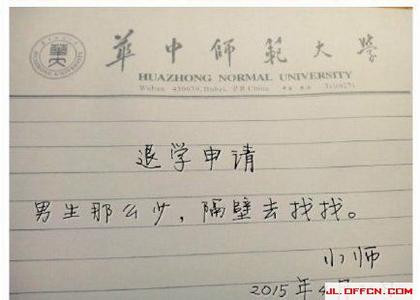 華中師範大學
HUAZHONG NORMAL UNIVERSITY
Wuhan 430079, Hubei, P.R.China
退学申请
男生那么少，隔壁去找找。
小师
2015年4月
JL.OFFCN.COM